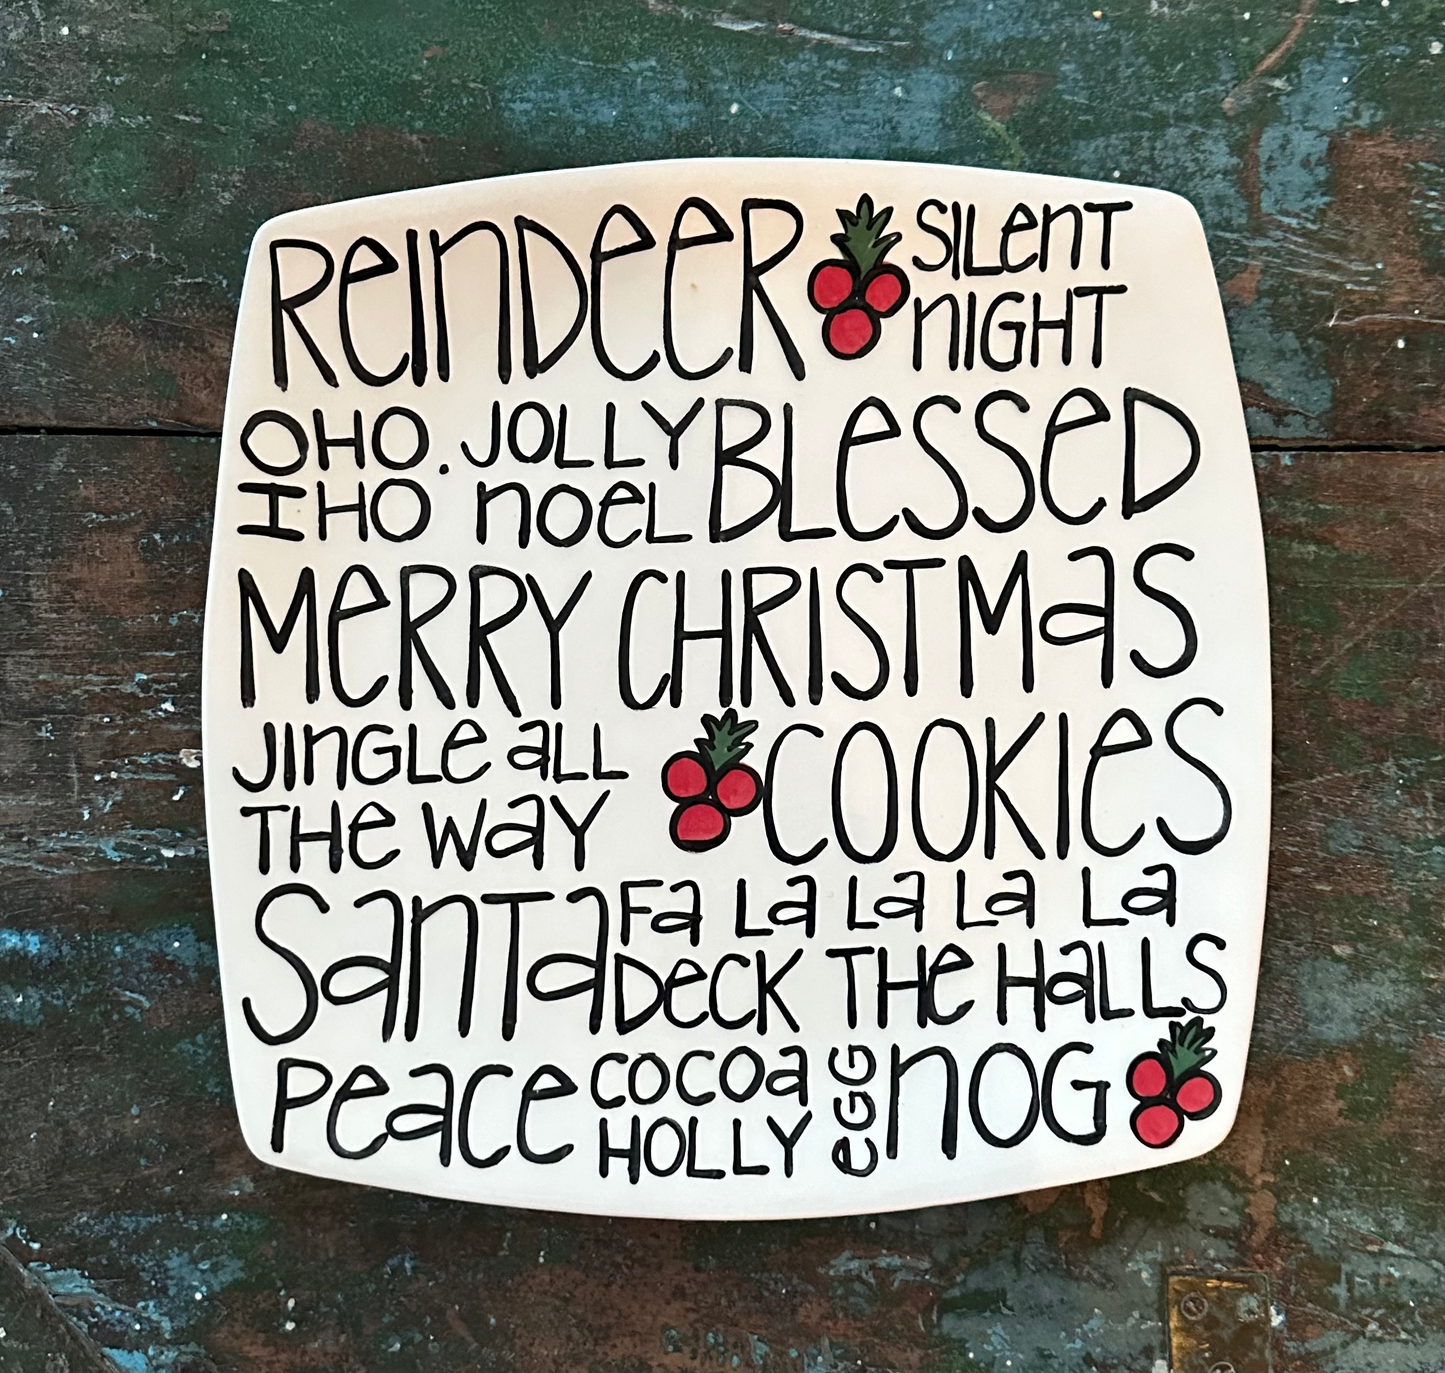 REINDEER
SILENT
NIGHT
OHO. JOLLY
HHO NOEL
BLESSED
MERRY CHRISTMAS
JINGLE ALL
THE WAY
COOKIES
SANTA
FA LA LA LA LA
DECK THE HALLS
PEACE
COCOA
HOLLY
EGG
NOG